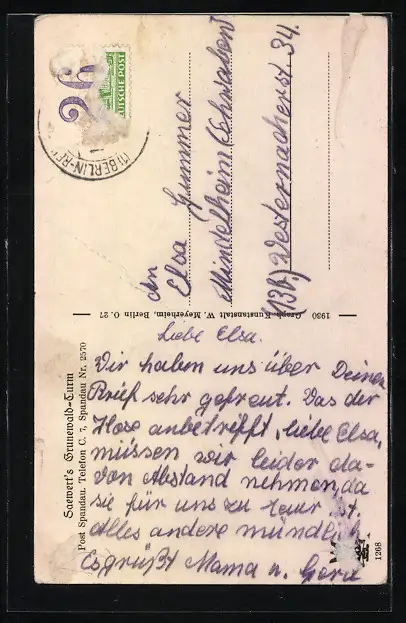 26
DEUTSCHE POST
BERLIN-
An
Elsa Gummer
Mindelheim (Schwaben)
(13b) Westernacherst 34.
1930 Graph. Kunstanstalt W. Meyerheim, Berlin O. 27
Saewert's Grunewald-Turm
Post Spandau. Telefon C. 7, Spandau Nr. 2570
Liebe Elsa.
Wir haben uns über Deinen
Brief sehr gefreut. Das der
Hose anbetrifft, liebe Elsa,
müssen wir leider da-
von Abstand nehmen, da
sie für uns zu teuer ist.
Alles andere mündlich
Es grüßt Mama u. Gerd
1268